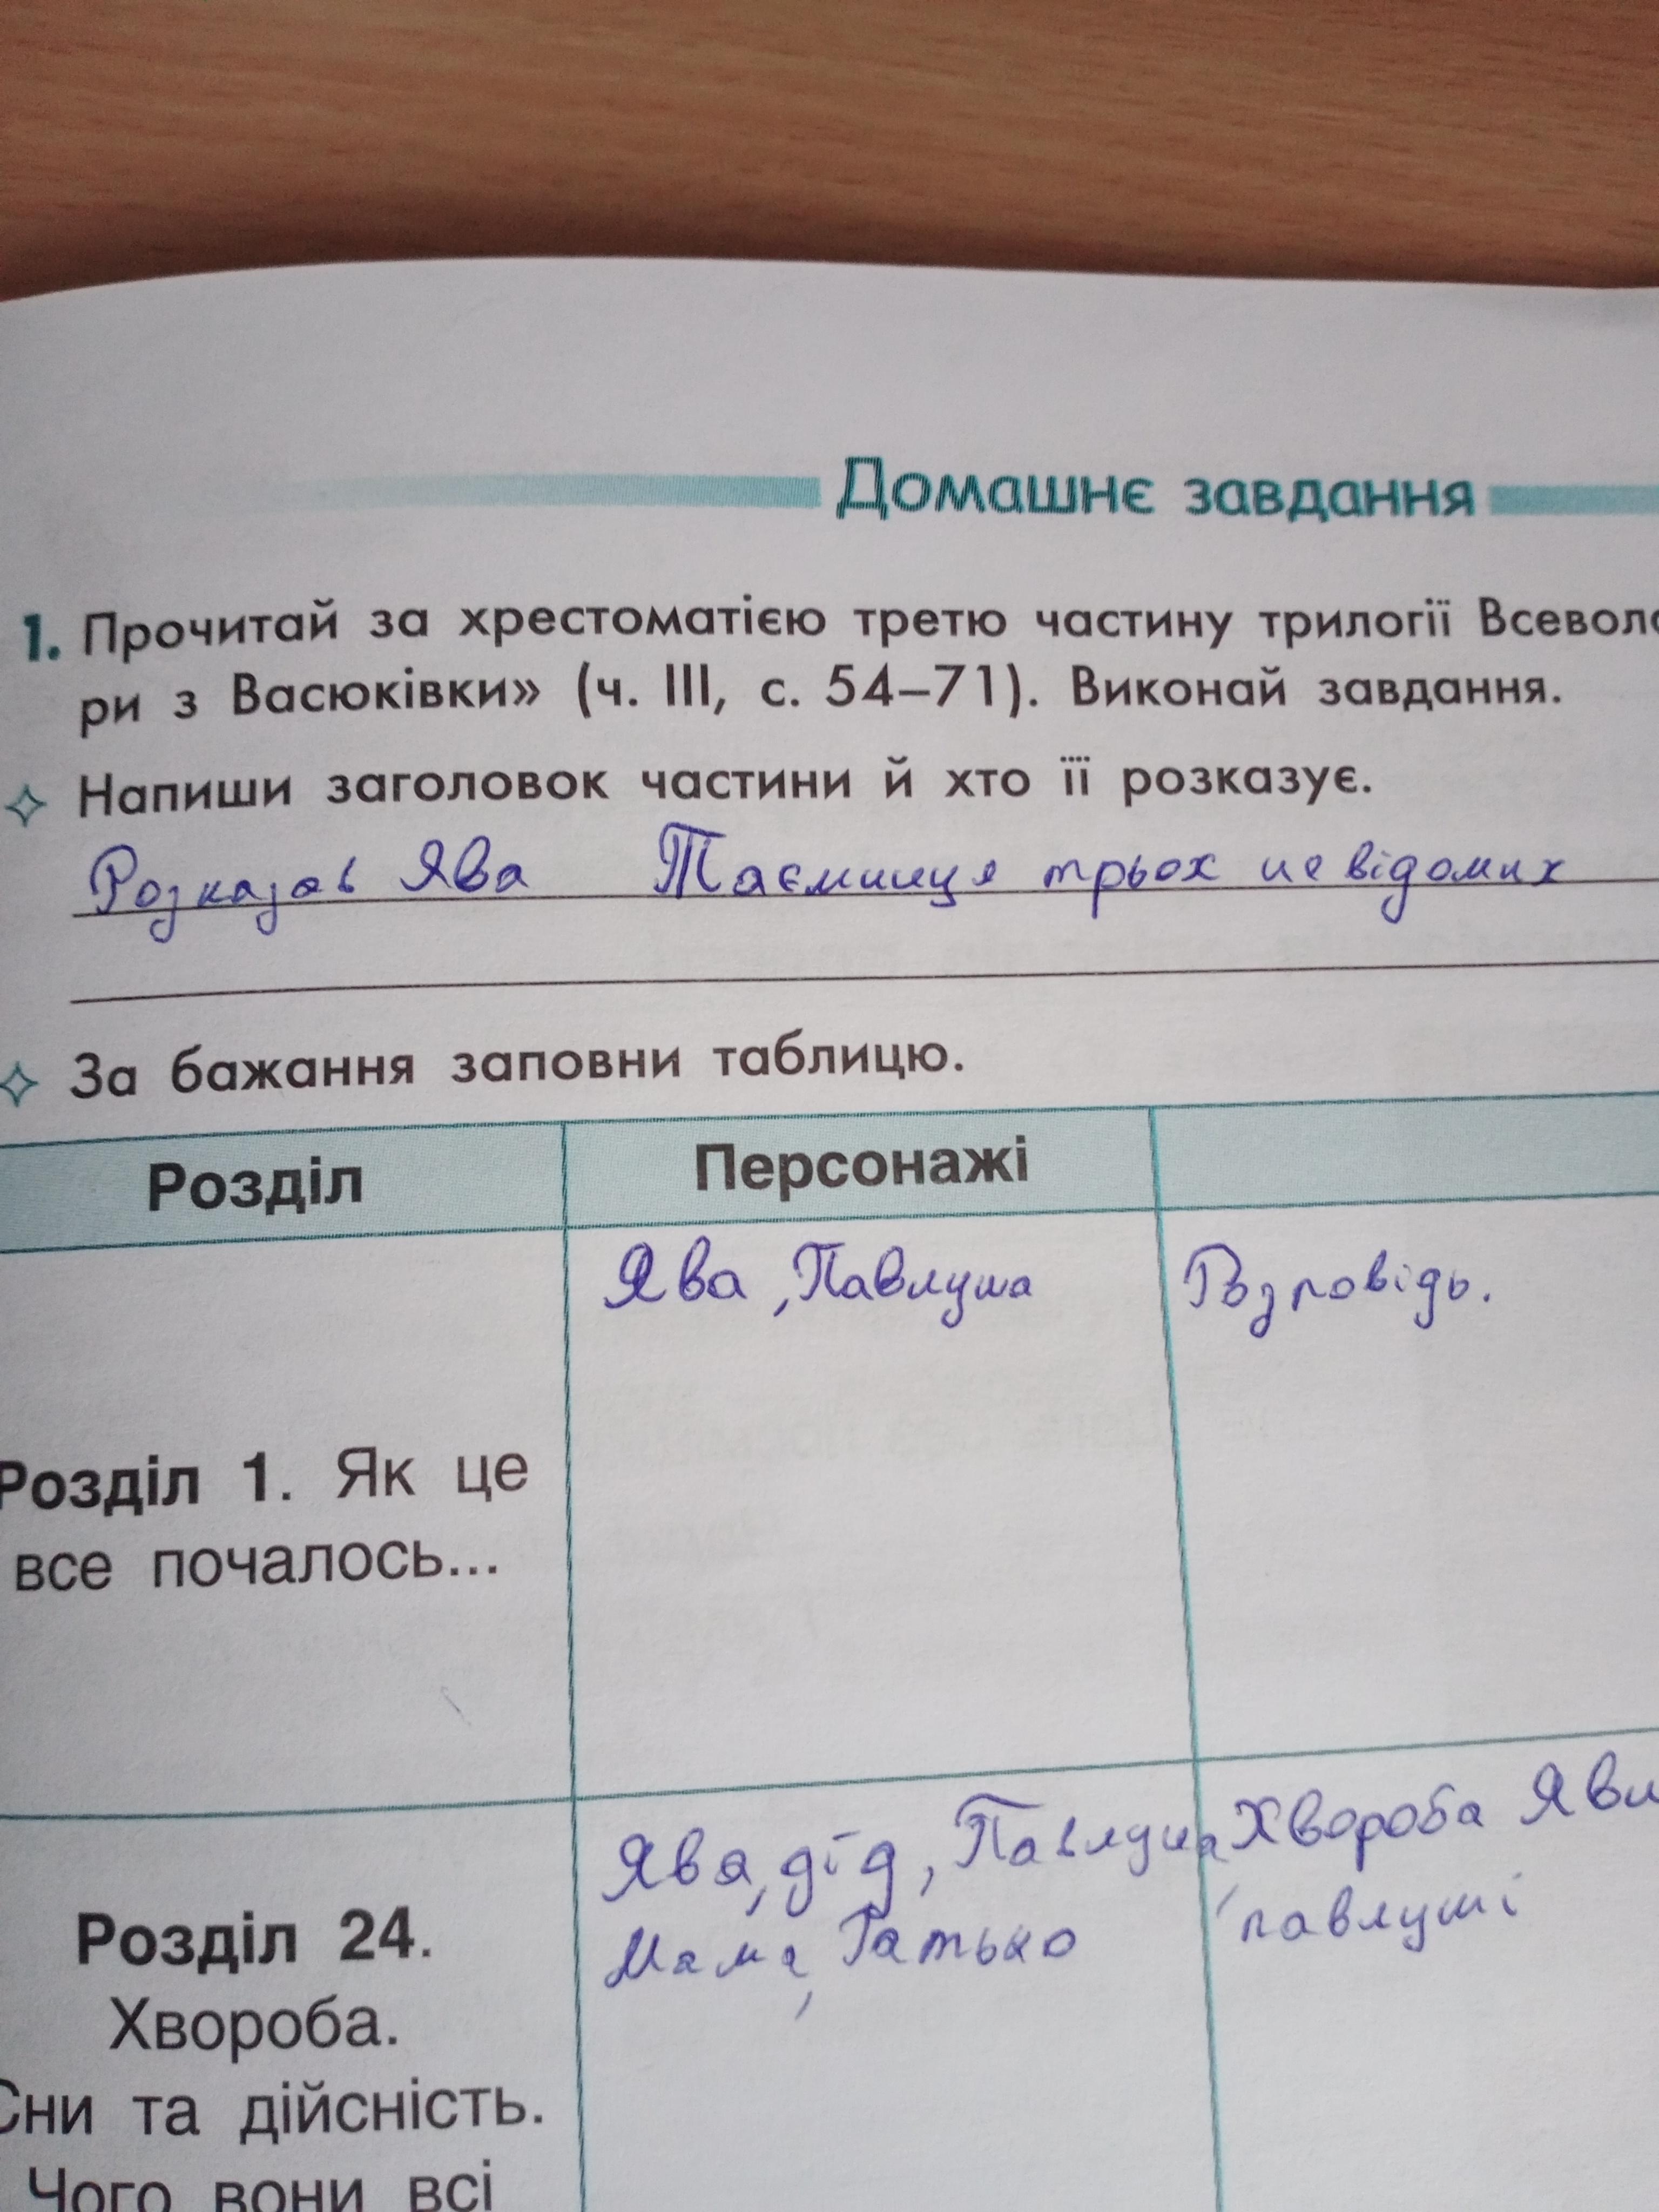 Домашнє завдання
1. Прочитай за хрестоматією третю частину трилогії Всевол
ри з Васюківки» (ч. III, с. 54–71). Виконай завдання.
✧ Напиши заголовок частини й хто її розказує.
Розказав Ява Таємниця трьох невідомих
✧ За бажання заповни таблицю.
Розділ Персонажі
Ява, Павлуша Розповідь.
Розділ 1. Як це
все почалось...
Ява, дід, Павлуша Хвороба Яви
Мама, Татько павлуші
Розділ 24.
Хвороба.
Сни та дійсність.
Чого вони всі